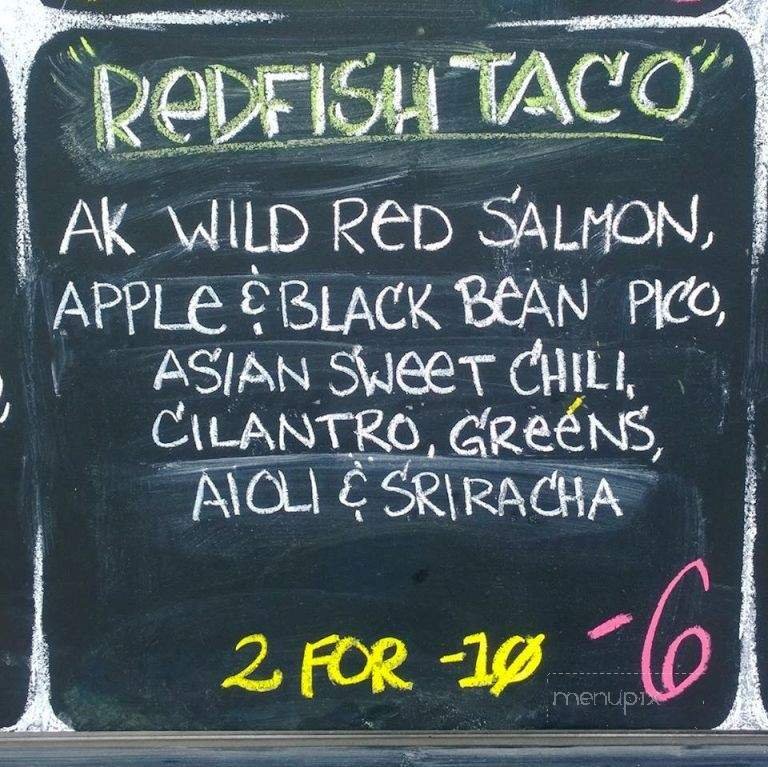 "REDFISH TACO"
AK WILD RED SALMON,
APPLE & BLACK BEAN PICO,
ASIAN SWEET CHILI,
CILANTRO, GREENS,
AIOLI & SRIRACHA
2 FOR -10 -6
menupix